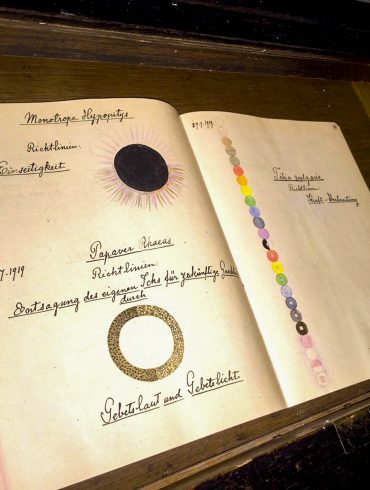 Monotropa Hypopitys
Richtlinien:
Einseitigkeit
Papaver Rhaeas
7.1919
Richtlinien:
Entsagung des eigenen Ichs für zukünftige
durch
Gebetslaut und Gebetslicht
Tilia vulgaris
Richtlinien:
Kraft-